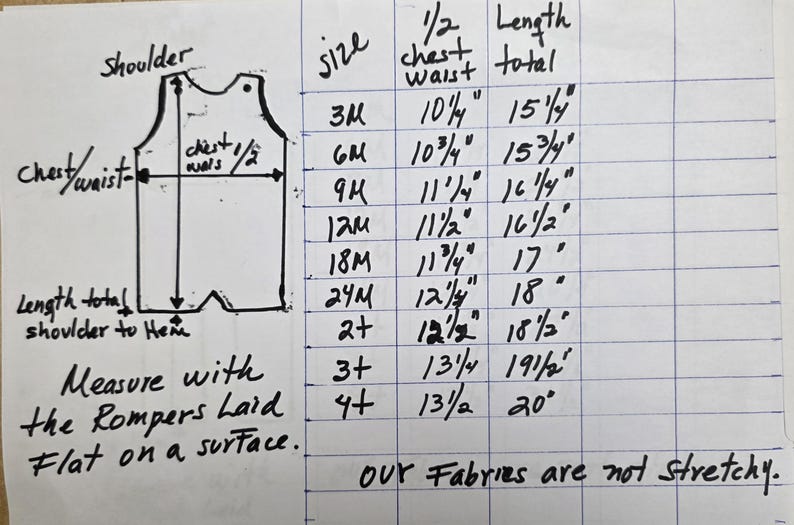 Shoulder
chest
wais 1/2
Chest/waist
Length total
shoulder to Hem
Measure with
the Rompers Laid
Flat on a surface.
size 1/2 chest waist Length total
3M 10 1/4" 15 1/4"
6M 10 3/4" 15 3/4"
9M 11 1/4" 16 1/4"
12M 11 1/2" 16 1/2"
18M 11 3/4" 17"
24M 18"
2t 12 1/2" 18 1/2"
3t 13 1/4 19 1/2"
4t 13 1/2 20"
our Fabrics are not stretchy.